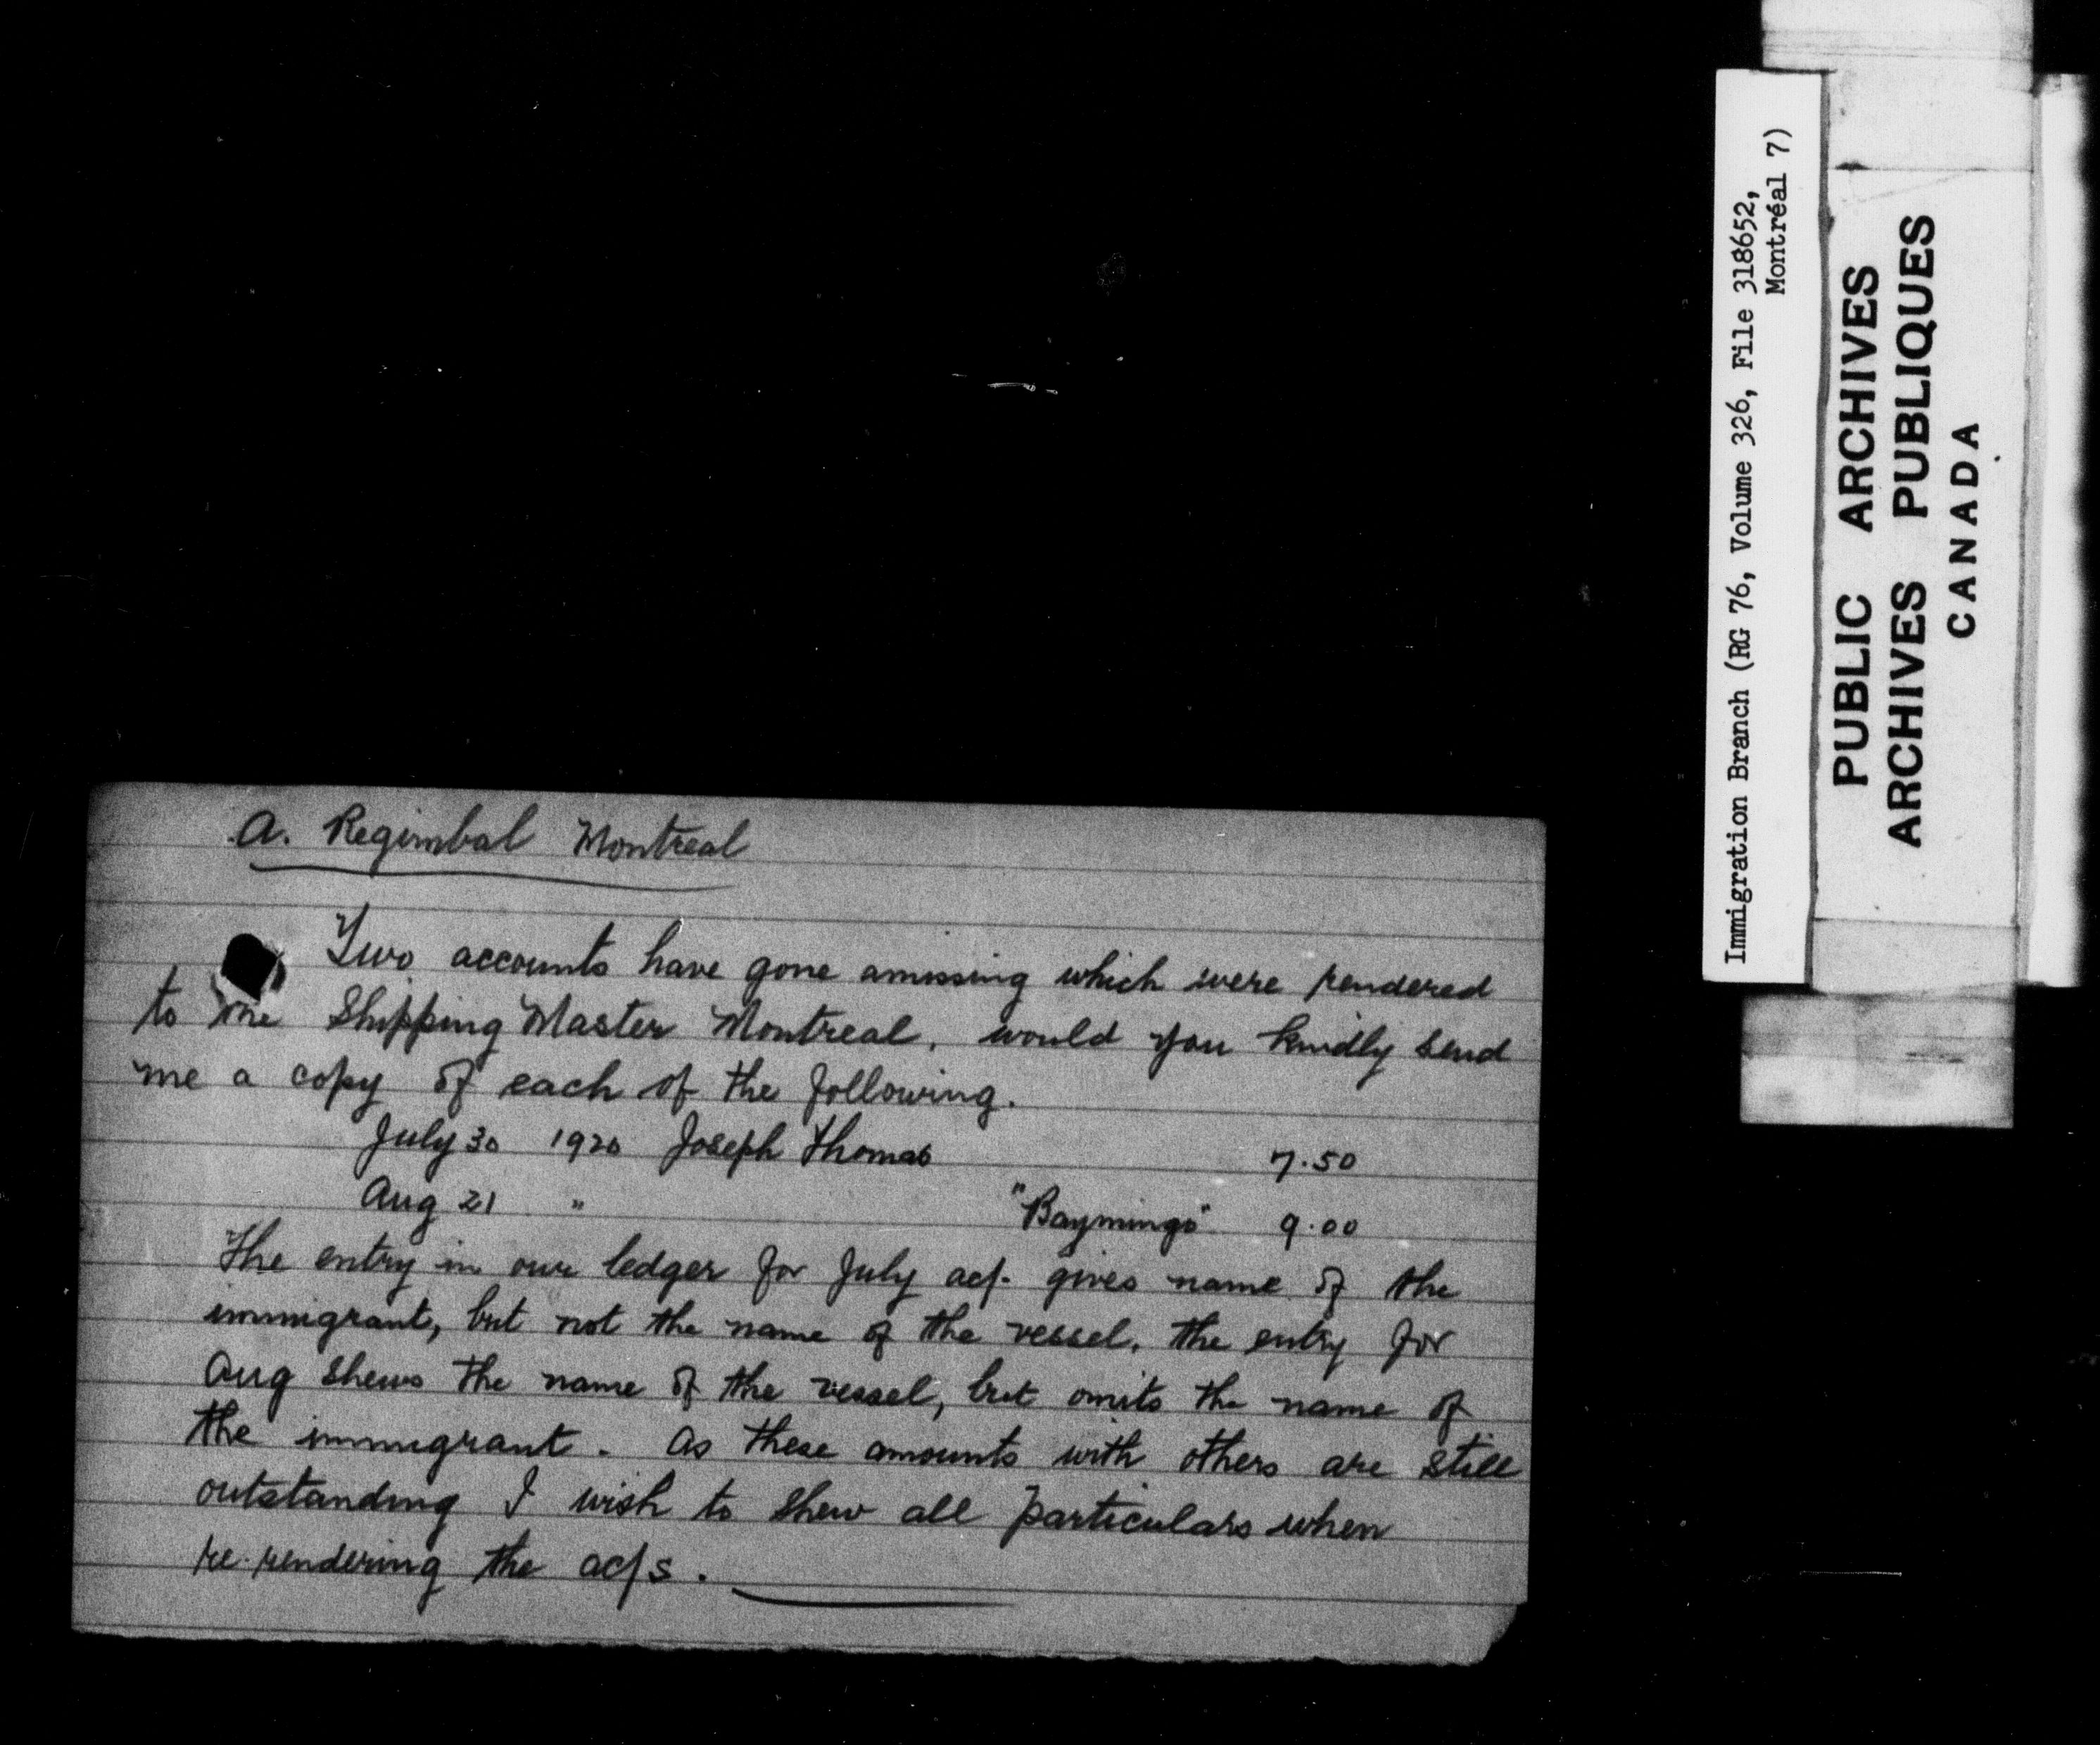 A. Regimbal Montreal
Two accounts have gone amissing which were rendered
to the Shipping Master Montreal, would you kindly send
me a copy of each of the following.
July 30 1920 Joseph Thomas 7.50
Aug 21 " "Baymingo" 9.00
The entry in our ledger for July ac/. gives name of the
immigrant, but not the name of the vessel, the entry for
Aug shews the name of the vessel, but omits the name of
the immigrant. As these amounts with others are still
outstanding I wish to shew all particulars when
re-rendering the ac/s.
Immigration Branch (RG 76, Volume 326, File 318652,
Montréal 7)
PUBLIC ARCHIVES
ARCHIVES PUBLIQUES
CANADA